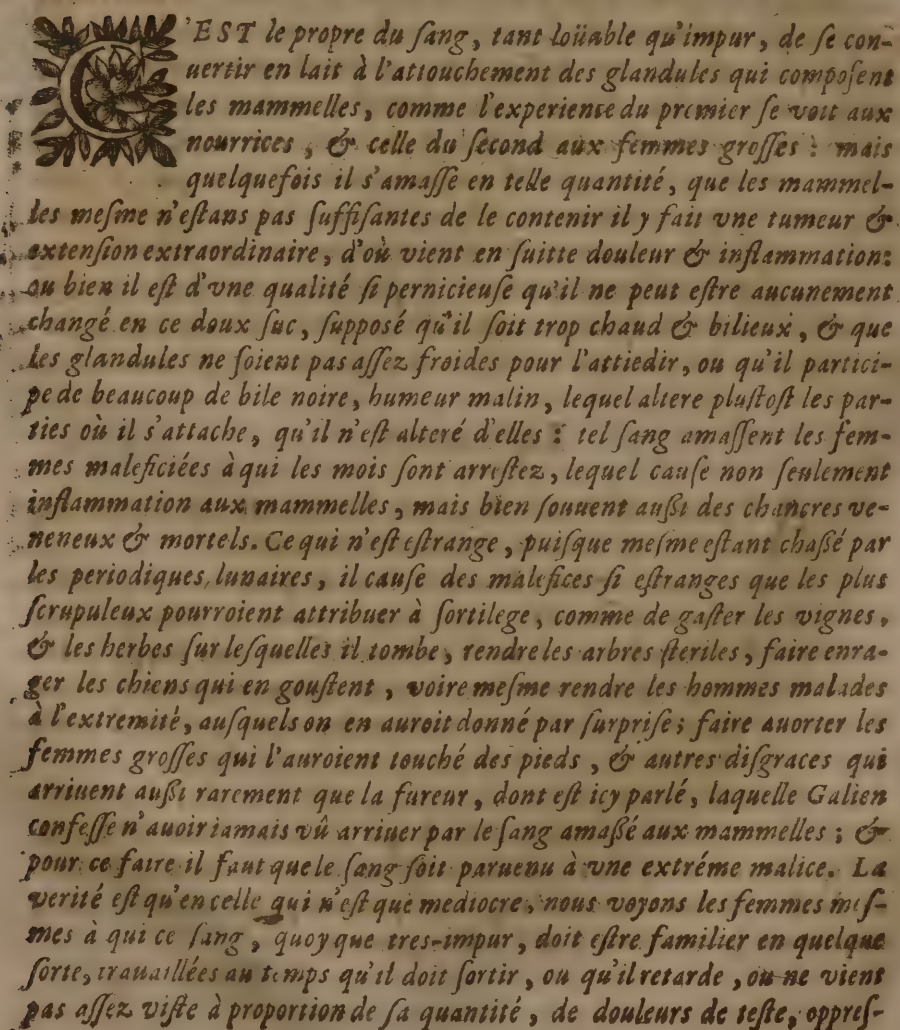 C'EST le propre du ſang, tant loüable qu'impur, de ſe con-
uertir en lait à l'attouchement des glandules qui compoſent
les mammelles, comme l'experience du premier ſe voit aux
nourrices, & celle du ſecond aux femmes groſſes : mais
quelquefois il s'amaſſe en telle quantité, que les mammel-
les meſme n'eſtans pas ſuffiſantes de le contenir il y fait vne tumeur &
extenſion extraordinaire, d'où vient en ſuitte douleur & inflammation:
ou bien il eſt d'vne qualité ſi pernicieuſe qu'il ne peut eſtre aucunement
changé en ce doux ſuc, ſuppoſé qu'il ſoit trop chaud & bilieux, & que
les glandules ne ſoient pas aſſez froides pour l'attiedir, ou qu'il partici-
pe de beaucoup de bile noire, humeur malin, lequel altere pluſtoſt les par-
ties où il s'attache, qu'il n'eſt alteré d'elles : tel ſang amaſſent les fem-
mes maleficiées à qui les mois ſont arreſtez, lequel cauſe non ſeulement
inflammation aux mammelles, mais bien ſouuent auſſi des chancres ve-
neneux & mortels. Ce qui n'eſt eſtrange, puiſque meſme eſtant chaſſé par
les periodiques lunaires, il cauſe des malefices ſi eſtranges que les plus
ſcrupuleux pourroient attribuer à ſortilege, comme de gaſter les vignes,
& les herbes ſur leſquelles il tombe, rendre les arbres ſteriles, faire enra-
ger les chiens qui en gouſtent, voire meſme rendre les hommes malades
à l'extremité, auſquels on en auroit donné par ſurpriſe; faire auorter les
femmes groſſes qui l'auroient touché des pieds, & autres diſgraces qui
arriuent auſſi rarement que la fureur, dont eſt icy parlé, laquelle Galien
confeſſe n'auoir iamais vû arriuer par le ſang amaſſé aux mammelles ; &
pour ce faire il faut que le ſang ſoit paruenu à vne extréme malice. La
verité eſt qu'en celle qui n'eſt que mediocre, nous voyons les femmes meſ-
mes à qui ce ſang, quoy que tres-impur, doit eſtre familier en quelque
ſorte, trauaillées au temps qu'il doit ſortir, ou qu'il retarde, ou ne vient
pas aſſez viſte à proportion de ſa quantité, de douleurs de teſte, oppreſ-